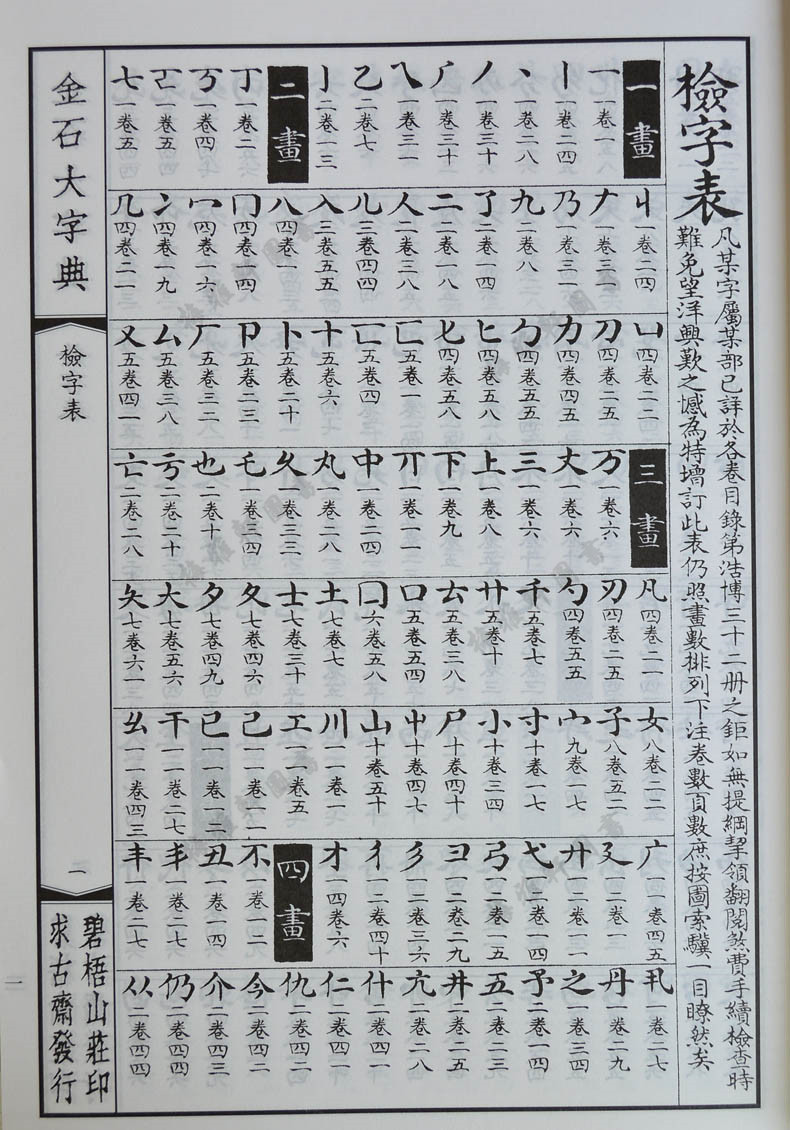 檢字表
凡某字屬某部已詳於各卷目錄第浩博三十二册之鉅如無提綱挈領翻閱煞費手續檢查時
難免望洋興歎之憾為特增訂此表仍照畫數排列下注卷數頁數庶按圖索驥一目瞭然矣
一畫
一 一卷一
丨 一卷二四
丶 一卷二八
丿 一卷三十
一卷三十
乀 一卷三一
乙 二卷七
亅 二卷一三
二畫
丁 一卷二
丂 一卷四
一卷五
七 一卷五
丩 一卷二四
𠂇 一卷三一
乃 一卷三一
九 二卷八
了 二卷一四
二 二卷一八
人 二卷三八
儿 三卷四四
入 三卷五五
八 四卷一
冂 四卷一四
冖 四卷一六
冫 四卷一九
几 四卷二一
凵 四卷二二
刀 四卷二五
力 四卷四五
勹 四卷五五
匕 四卷五八
𠤎 四卷五八
匚 五卷一
匸 五卷四
十 五卷六
卜 五卷二十
卩 五卷二三
厂 五卷三二
厶 五卷三八
又 五卷四一
三畫
万 一卷六
丈 一卷六
三 一卷六
上 一卷八
下 一卷九
丌 一卷一一
中 一卷二四
丸 一卷二八
久 一卷三三
乇 一卷三四
也 二卷十
亏 二卷二十
亡 二卷二八
凡 四卷二一
刃 四卷二五
勺 四卷五五
千 五卷七
廿 五卷十
厺 五卷三八
口 五卷五四
囗 六卷五八
土 七卷七
士 七卷三十
夂 七卷四六
夕 七卷四九
大 七卷五六
夨 七卷六一
女 八卷二二
子 八卷五二
宀 九卷一七
寸 十卷一七
小 十卷三四
尸 十卷四十
屮 十卷四七
山 十卷五十
川 一一卷一
工 一一卷五
己 一一卷一一
巳 一一卷一二
干 一一卷二七
幺 一一卷四三
广 一一卷四五
廴 一二卷一
廾 一二卷
弋 一二卷一四
弓 一二卷一五
彐 一二卷二九
彡 一二卷三六
彳 一二卷四十
才 一四卷六
四畫
不 一卷一二
丑 一卷一四
丯 一卷二七
丰 一卷二七
丮 一卷二七
丹 一卷二九
之 一卷三四
予 二卷一四
五 二卷二三
井 二卷二五
亢 二卷二八
什 二卷四一
仁 二卷四一
仇 二卷四二
今 二卷四二
介 二卷四三
仍 二卷四四
从 二卷四四
金石大字典
檢字表
一
碧梧山莊印
求古齋發行
一